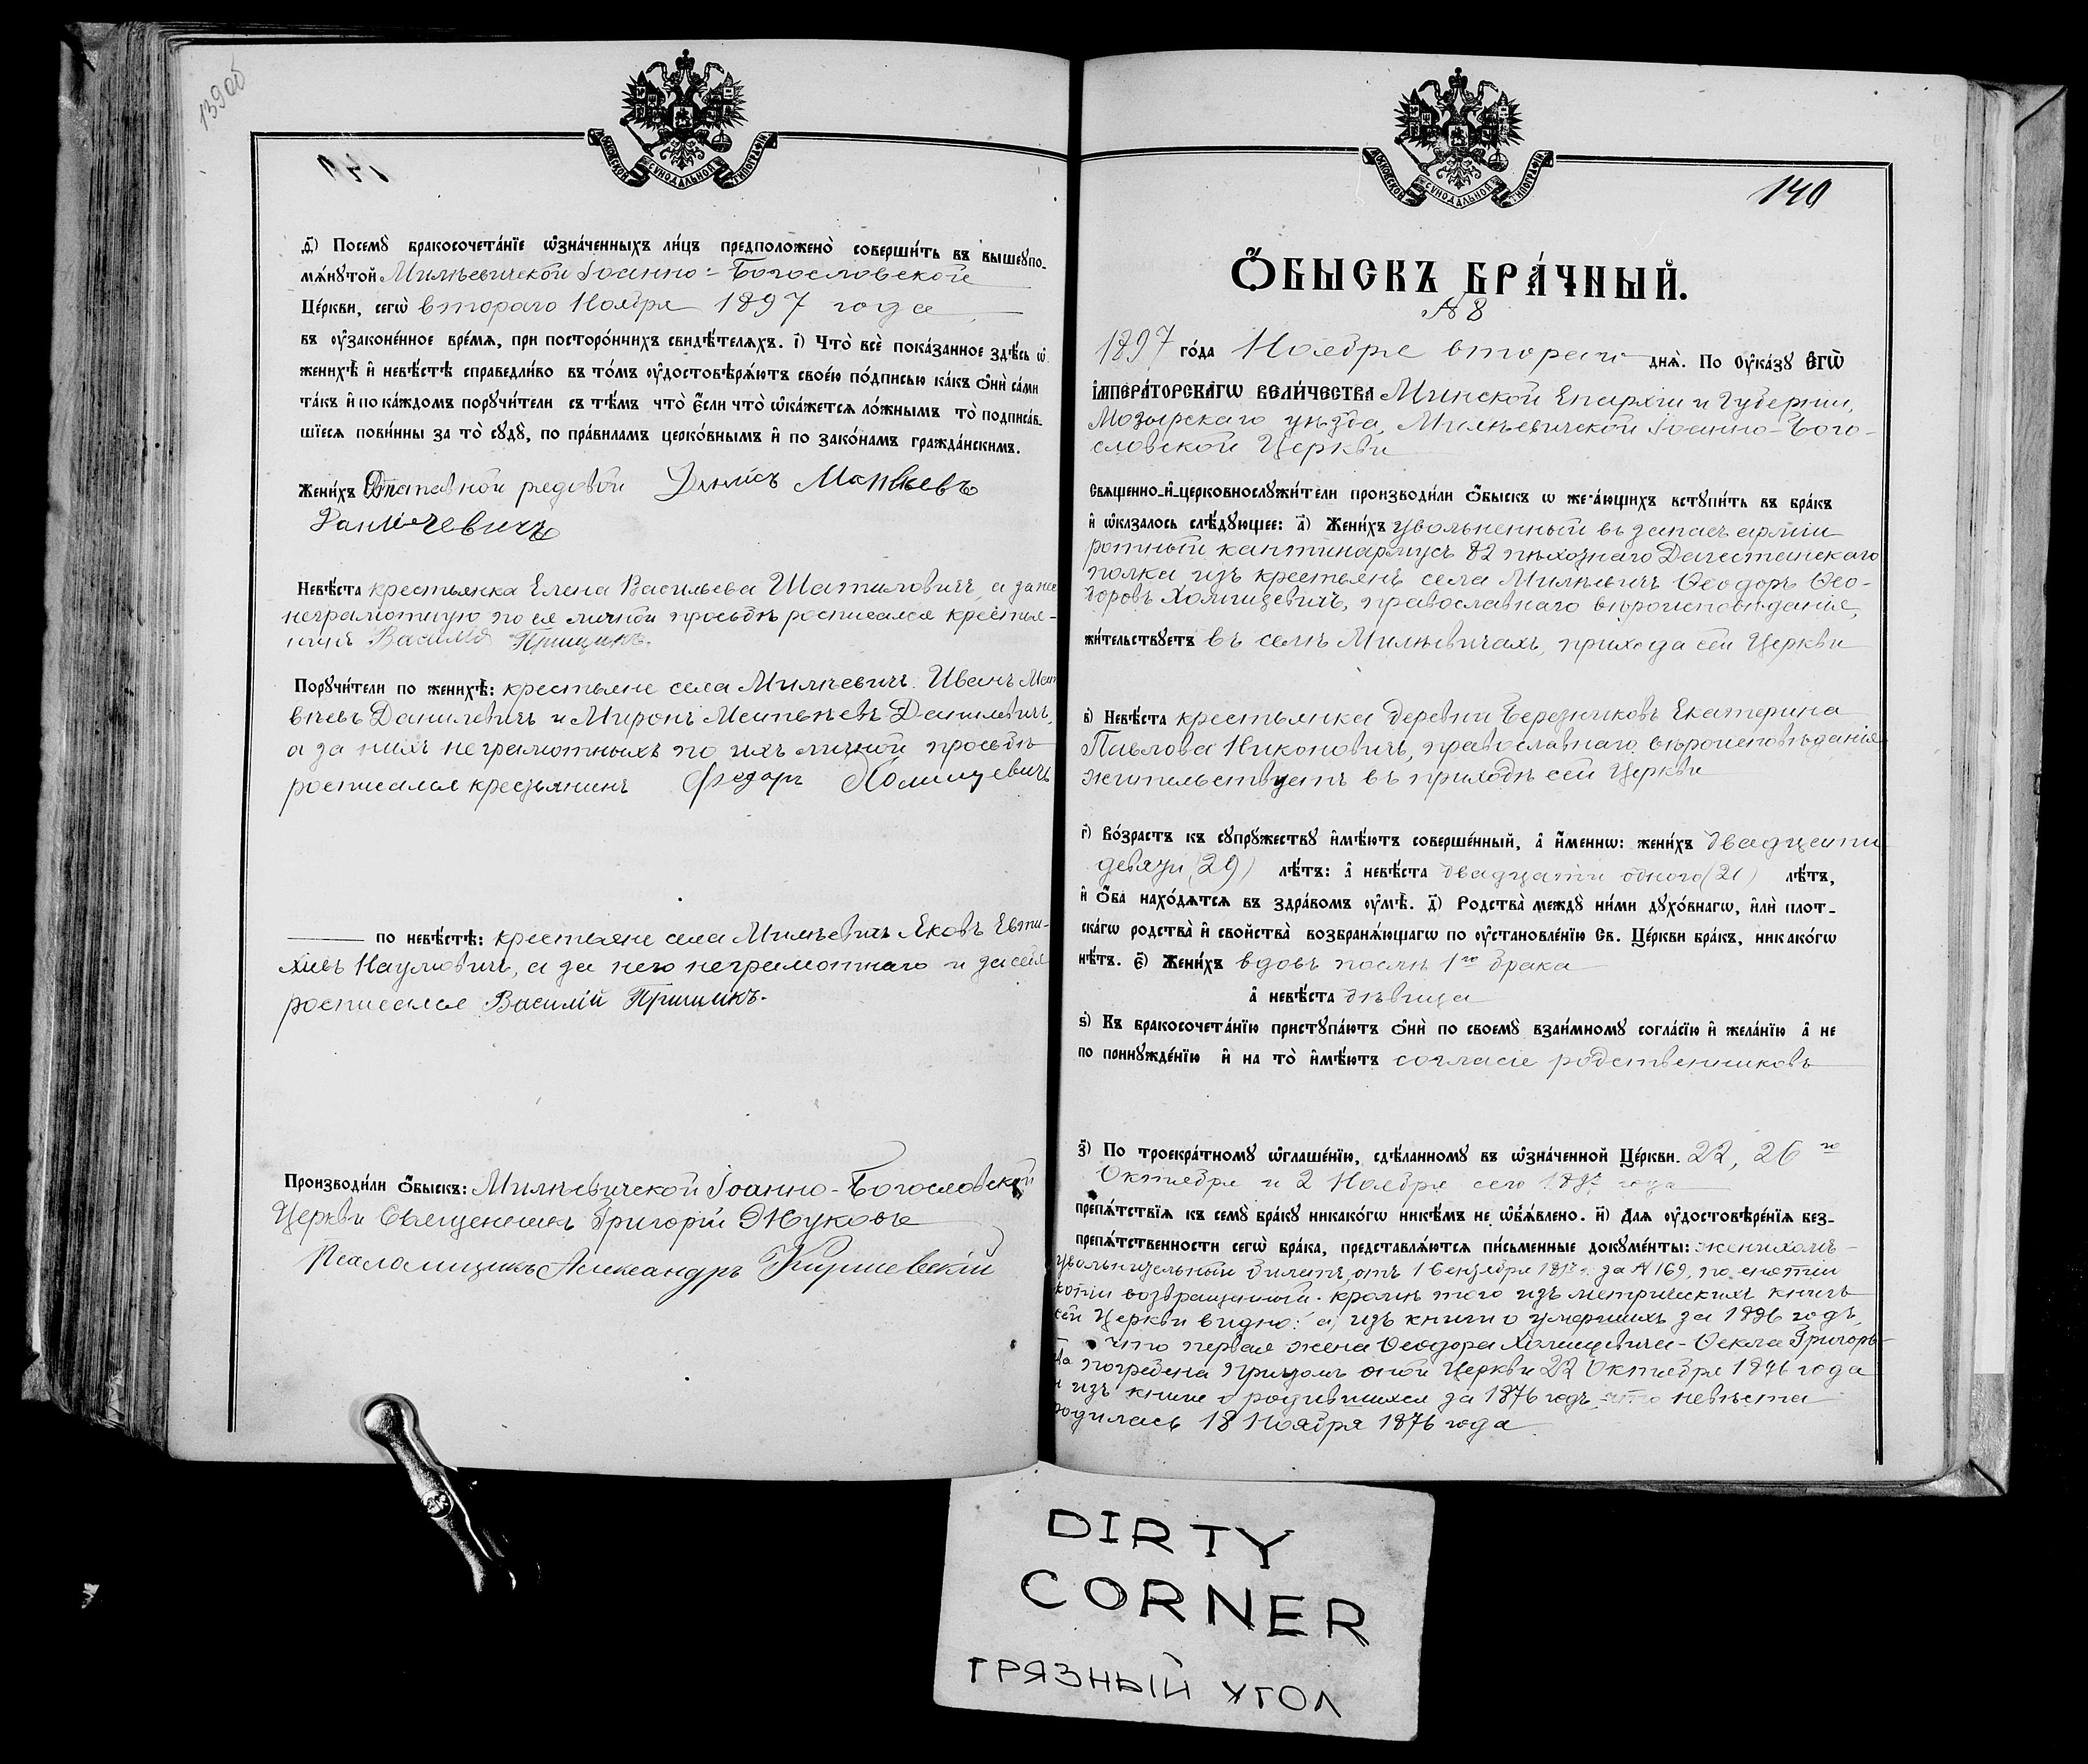 139об
140
МОСКОВСКОЙ СѴНОДАЛЬНОЙ ТИПОГРАФІИ.
ѳ҃) Посемꙋ̀ бракосочета́нїе ѡ҆зна́ченныхъ ли́цъ предположено̀ соверши́ть въ вышеꙋпо-
мѧ́нꙋтой Милѣевичской Іоанно-Богословской
Це́ркви, сегѡ̀ втораго Ноября 1897 года
въ ᲂу҆зако́не́нное вре́мѧ, при посторо́ннихъ свидѣ́телѧхъ. і҃) Что̀ всѐ пока́занное здѣ́сь ѡ҆
женихѣ̀ и҆ невѣ́стѣ справедли́во въ то́мъ ᲂу҆достовѣрѧ́ютъ свое́ю по́дписью ка́къ ѻ҆нѝ са́ми
та́къ и҆ по ка́ждомъ порꙋчи́тели съ тѣ́мъ что̀ є҆́сли что̀ ѡ҆ка́жетсѧ ло́жнымъ то̀ подписа́в-
шїесѧ пови́нны за то̀ сꙋдꙋ̀, по пра́виламъ церко́внымъ и҆ по зако́намъ гражда́нскимъ.
Жени́хъ Отставной рядовой Данилъ Матвѣевъ
Данилевичъ
Невѣ́ста крестьянка Елена Васильева Шатиловичъ, а за нее
неграмотную по ея личной просьбѣ росписался крестья-
нинъ Василій Прищикъ.
Порꙋчи́тели по женихѣ̀: крестьяне села Милѣевичъ Иванъ Мат
вѣевъ Данилевичъ и Миронъ Матвѣевъ Данилевичъ,
а за нихъ неграмотныхъ по ихъ личной просьбѣ
росписался крестьянинъ Федоръ Хомицевичъ
по невѣ́стѣ: крестьяне села Милѣевичъ Яковъ Евти-
хіевъ Наумовичъ, а за него неграмотнаго и за себя
росписался Василій Прищикъ.
Производи́ли ѻ҆́быскъ: Милѣевичской Іоанно-Богословской
Церкви Священникъ Григорій Жуковъ
Псаломщикъ Александръ
140
МОСКОВСКОЙ СѴНОДАЛЬНОЙ ТИПОГРАФІИ.
Ѻ҆́БЫСКЪ БРА́ЧНЫЙ.
№ 8
1897 го́да Ноября второго днѧ̀. По ᲂу҆ка́зꙋ є҆гѡ̀
і҆мпера́торскагѡ вели́чества Минской Епархіи и Губерніи,
Мозырскаго уѣзда, Милѣевичской Іоанно-Бого-
словской Церкви
Свѧще́нно-и҆-церковнослꙋжи́тели производи́ли ѻ҆́быскъ ѡ жела́ющихъ встꙋпи́ть въ бра́къ
и҆ ѡ҆казалось слѣ́дꙋющее: а҃) Жени́хъ увольненный въ запасъ арміи
ротный каптинармусъ 82 пѣхознаго Дагестанскаго
полка изъ крестьянъ села Милѣевичъ Ѳеодоръ Ѳео-
доровъ Хомицевичъ, православнаго вѣроисповѣданія,
жи́тельствꙋетъ въ селѣ Милѣевичахъ, прихода сей Церкви
в҃) Невѣ́ста крестьянка деревни Березняковъ Екатерина
Павлова Никоновичъ, православнаго вѣроисповѣданія
жительствуетъ въ приходѣ сей Церкви
г҃) Во́зрастъ къ сꙋпрꙋ́жествꙋ и҆мѣ́ютъ соверше́нный, а҆ и҆́меннѡ: жени́хъ двадцати
девяти (29) лѣ́тъ: а҆ невѣ́ста двадцати одного (21) лѣ́тъ,
и҆ ѻ҆́ба нахо́дѧтсѧ въ здра́вомъ ᲂу҆мѣ̀. д҃) Родства̀ междꙋ ни́ми дꙋхо́внагѡ, и҆лѝ плот-
ска́гѡ родства̀ и҆ сво́йства̀ возбранѧ́ющагѡ по ᲂу҆становле́нїю Св. Це́ркви бра́къ, никако́гѡ
нѣ́тъ. є҃) Жени́хъ вдовъ послѣ 1го брака
а҆ невѣ́ста дѣвица
ѕ҃) Къ бракосочета́нїю пристꙋпа́ютъ ѻ҆нѝ по своемꙋ̀ взаи́мномꙋ согла́сїю и҆ жела́нїю а҆ не
по принꙋжде́нїю и҆ на то̀ и҆мѣ́ютъ согласіе родственниковъ
з҃) По троекра́тномꙋ ѡ҆глаше́нїю, сдѣ́ланномꙋ въ ѡ҆зна́ченной Це́ркви. 22, 26 го
Октября и 2 Ноября сего 1897 года
препѧ́тствїѧ къ семꙋ̀ бра́кꙋ никако́гѡ никѣ́мъ не ѡ҆б̾ѧ́влено. и҃) Длѧ ᲂу҆достовѣре́нїѧ без-
препѧ́тственности сегѡ̀ бра́ка, представлѧ́ютсѧ пи́сьменные докꙋме́нты: женихомъ-
увольнительный билетъ, отъ 1 Сентября за № 169, по снятіи
копіи возвращенный. кромѣ того изъ метрическихъ книгъ
сей Церкви видно: а) изъ книги о умершихъ за 1896 годъ,
что первая жена Ѳеодора Хомицевича - Ѳекла Григорь-
ева погребена причтомъ оной Церкви 22 Октября 1896 года
и изъ книги о родившихся за 1876 годъ, что невѣста
родилась 18 Ноября 1876 года
DIRTY
CORNER
ГРЯЗНЫЙ УГОЛ